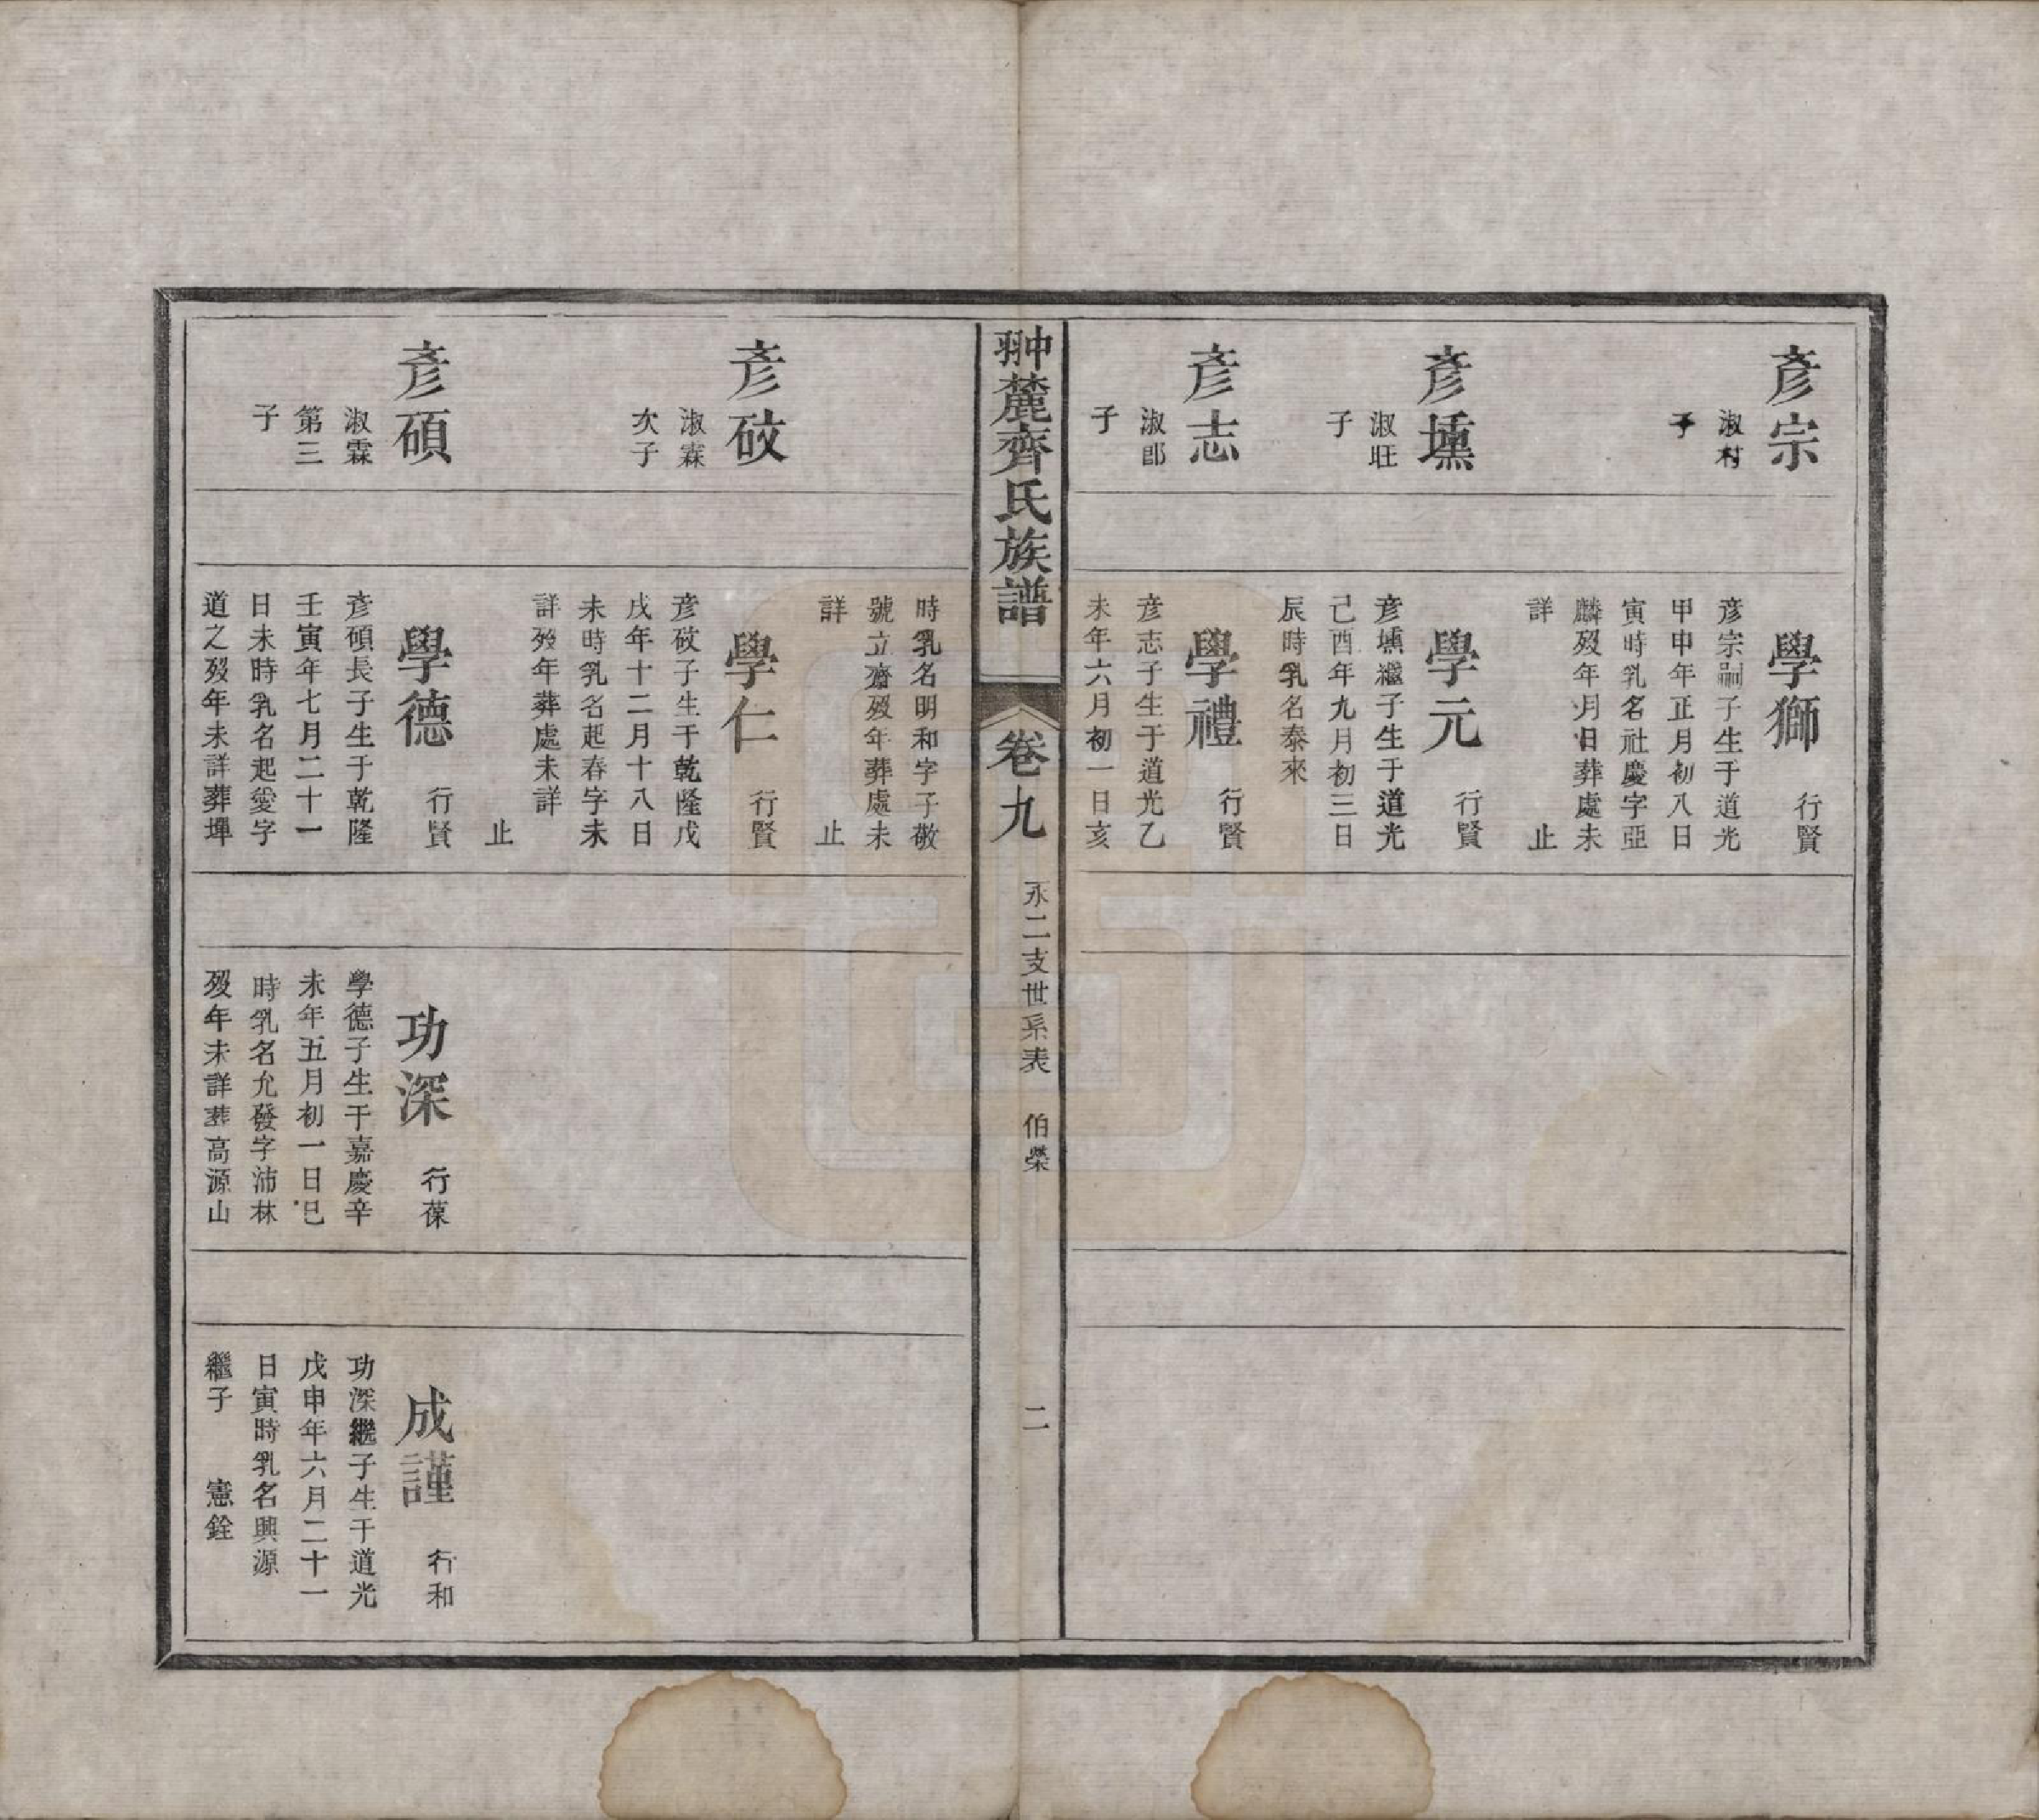 彥宗
淑村
子
彥壎
淑旺
子
彥志
淑郎
子
學獅 行賢
彥宗嗣子生于道光
甲申年正月初八日
寅時乳名社慶字亞
麟歿年月日葬處未
詳 止
學元 行賢
彥壎繼子生于道光
己酉年九月初三日
辰時乳名泰來
學禮 行賢
彥志子生于道光乙
未年六月初一日亥
翀麓齊氏族譜 卷九 永二支世系表 伯榮 二
彥砇
淑霖
次子
彥碩
淑霖
第三
子
時乳名明和字子敬
號立齋歿年葬處未
詳 止
學仁 行賢
彥砇子生于乾隆戊
戌年十二月十八日
未時乳名起春字未
詳歿年葬處未詳
止
學德 行賢
彥碩長子生于乾隆
壬寅年七月二十一
日未時乳名起愛字
道之歿年未詳葬墠
功深 行葆
學德子生于嘉慶辛
未年五月初一日巳
時乳名允發字沛林
歿年未詳葬高源山
成謹 行和
功深繼子生于道光
戊申年六月二十一
日寅時乳名興源
繼子 憲銓